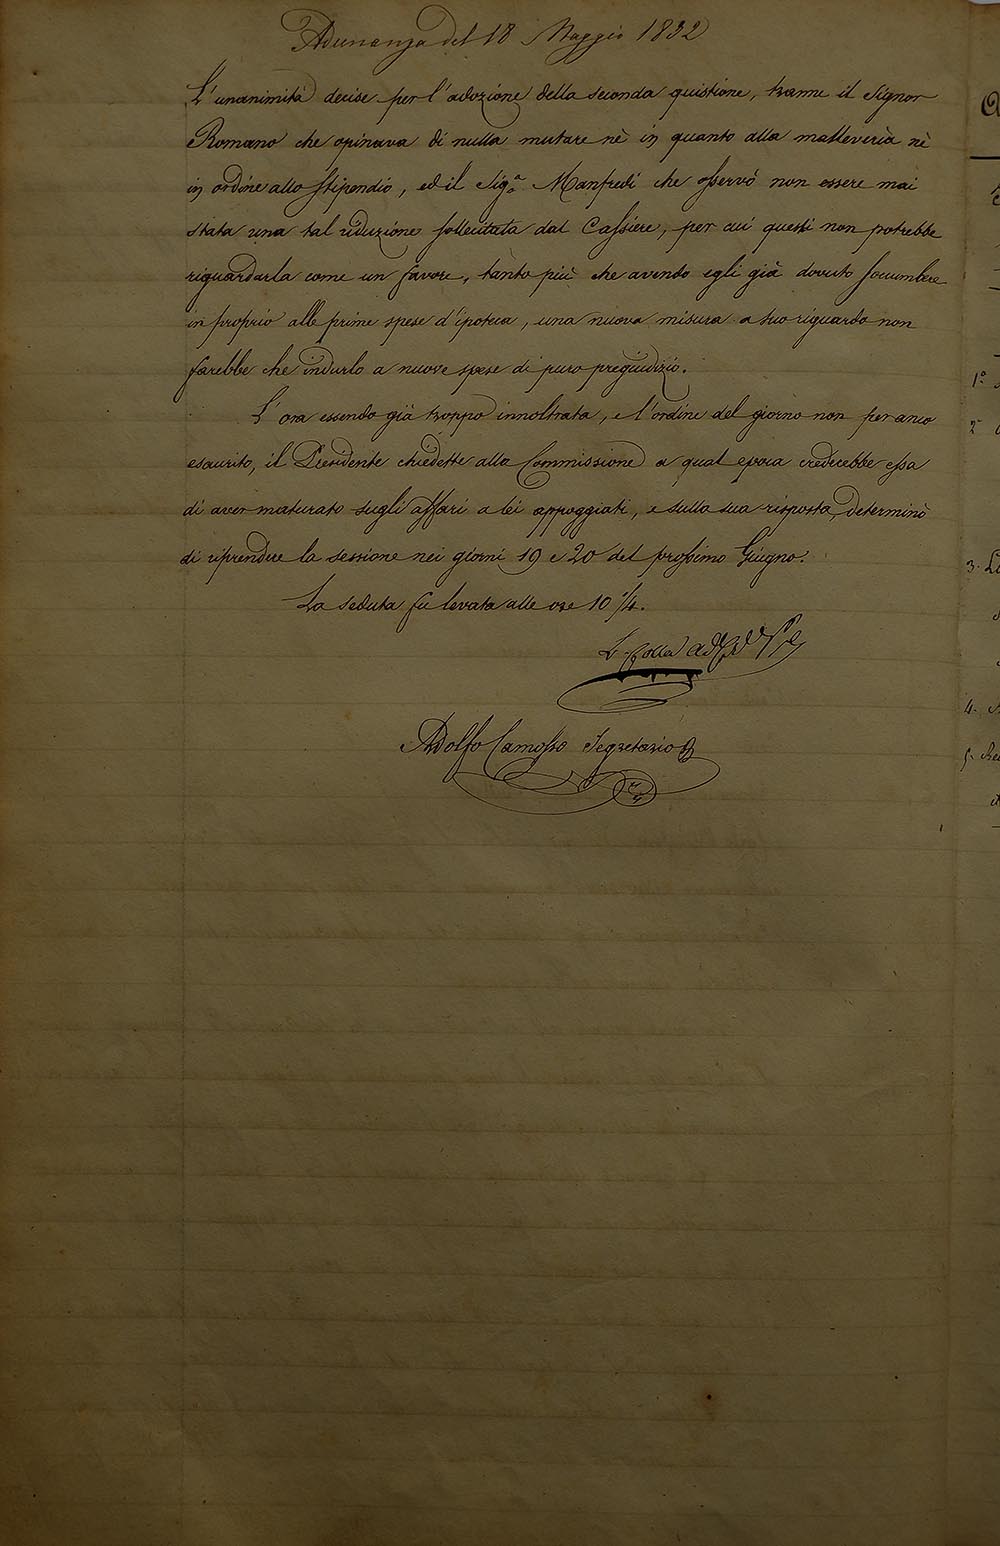 Adunanza del 18 Maggio 1832
L'unanimità decise per l'adozione della seconda quistione, tranne il Signor
Romano che opinava di nulla mutare nè in quanto alla malleveria nè
in ordine allo Stipendio, ed il Sigr. Manfredi che osservò non essere mai
stata una tal riduzione sollecitata dal Cassiere, per cui questi non potrebbe
riguardarla come un favore, tanto più che avendo egli già dovuto soccumbere
in proprio alle prime spese d'ipoteca, una nuova misura a suo riguardo non
farebbe che indurlo a nuove spese di puro pregiudizio.
L'ora essendo già troppo innoltrata, e l'ordine del giorno non per anco
esaurito, il Presidente chiedette alla Commissione a qual epoca crederebbe essa
di aver maturato sugli affari a lei appoggiati, e sulla sua risposta, determinò
di riprendere la sessione nei giorni 19 e 20 del prossimo Giugno.
La seduta fu levata alle ore 10 1/4.
L. Colla
Adolfo Camosso Segretario
1°
2°
3.
4.
5.